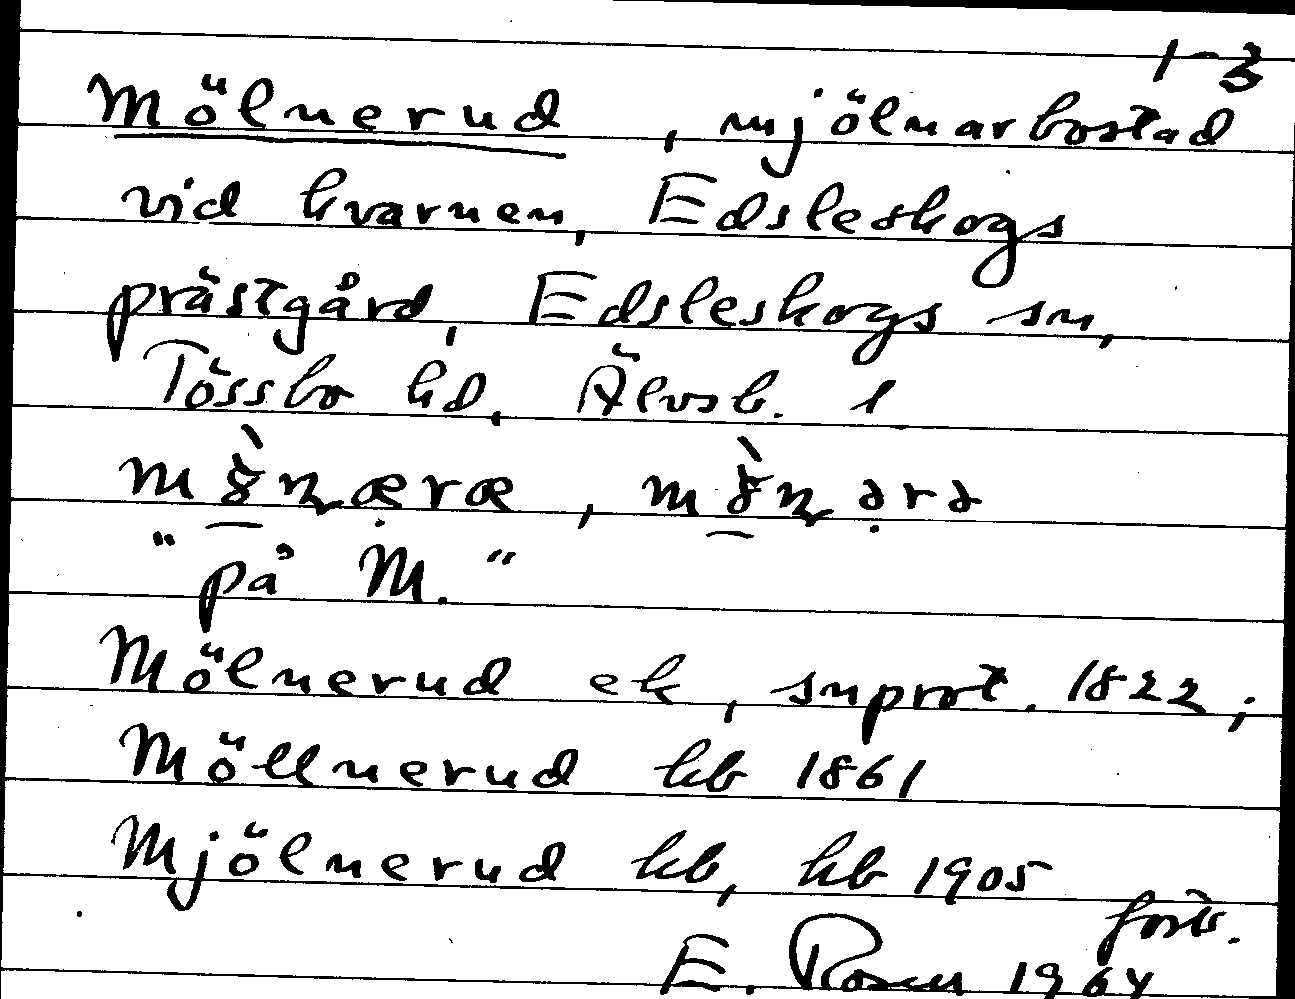 1-3
Mölnerud, mjölnarbostad
vid kvarnen, Edsleskogs
prästgård, Edsleskogs sn,
Tössbo hd, Älvsb. l
"på M."
Mölnerud ek, snprot. 1822;
Möllnerud hb 1861
Mjölnerud kb, hb 1905
forts.
E. Rosen 1964